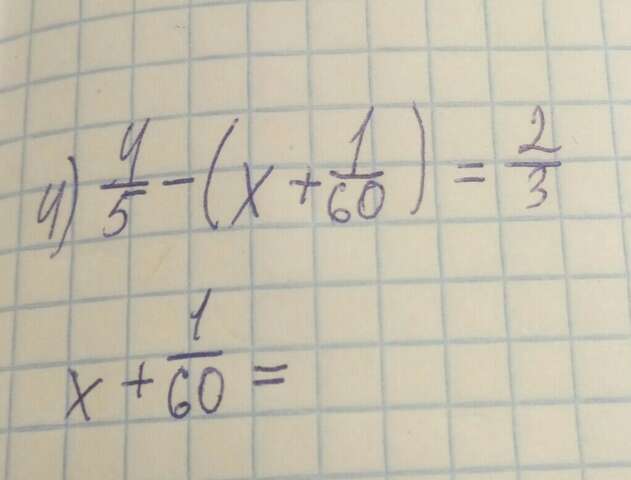 4) 4/5 - (x + 1/60) = 2/3
x + 1/60 =